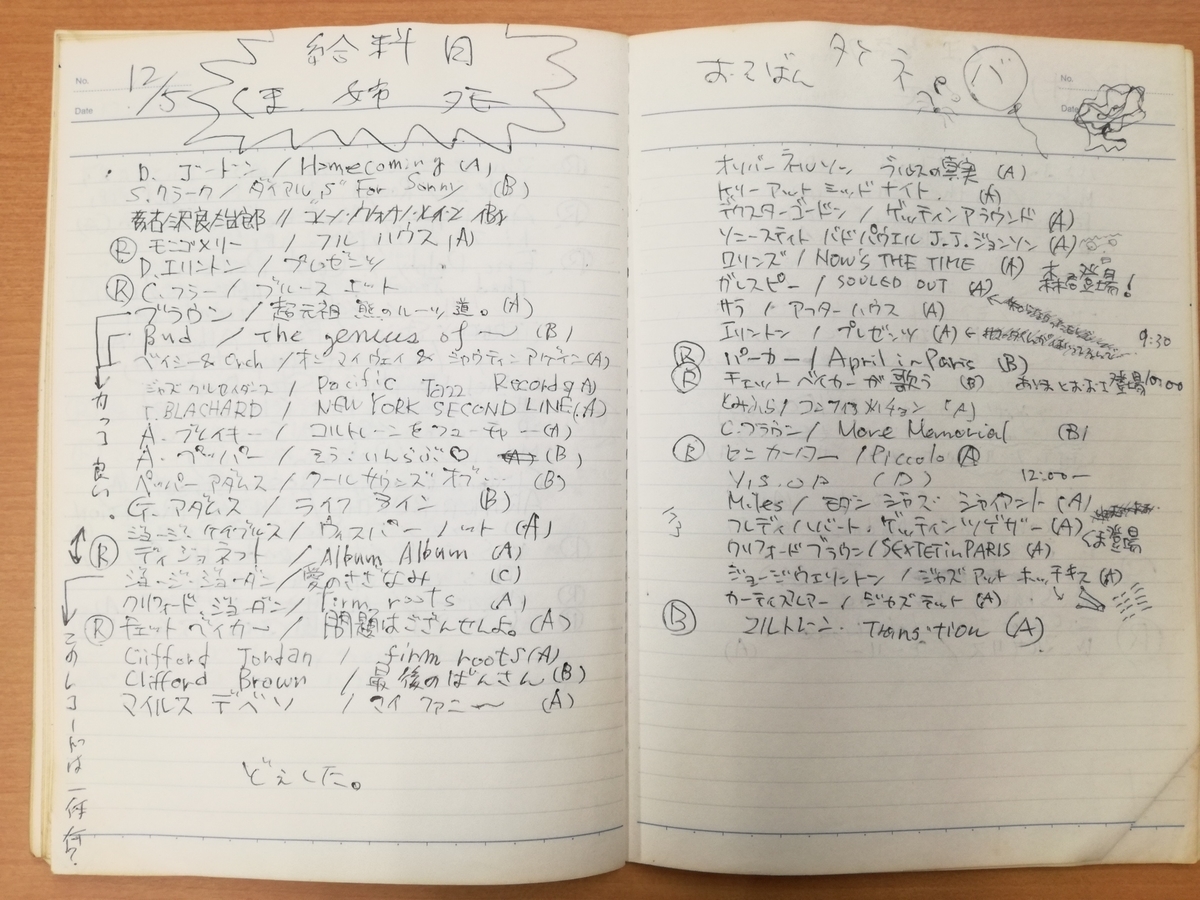 No.
Date
12/5
給料日
くま 姉 タモ
D. ゴードン / Homecoming (A)
S. クラーク / ダイアル "S" For Sonny (B)
Ⓡ モンゴメリー / フル ハウス (A)
D. エリントン / プレゼンツ
Ⓡ C. フラー / ブルース エット
ブラウン / 超元祖 熊のルーツ 道。(A)
Bud / The genius of 〜 (B)
ベイシー & Orch / オン マイ ウェイ & シャウティン アゲイン (A)
ジャズ クルセイダーズ / Pacific Jazz Records (A)
T. BLACHARD / NEW YORK SECOND LINE (A)
A. ブレイキー / コルトレーンをフューチャー (A)
A. ペッパー / そう・いんらぶ♡ (B)
ペッパー アダムス / クール サウンズ オブ… (B)
G. アダムス / ライフ ライン (B)
ジョージ ケイブルス / ウィスパー ノット (A)
Ⓡ ディジョネット / Album Album (A)
ジョージ ジョーダン / 愛のさざなみ (C)
クリフォード.ジョーダン / firm roots (A)
Ⓡ チェット ベイカー / 問題はござんせんよ。(A)
Clifford Jordan / firm roots (A)
Clifford Brown / 最後のばんさん (B)
マイルス デベソ / マイ ファニー 〜 (A)
どぇした。
カッコ良い。
このレコードは一体何?
No.
Date
おでばん
バ
オリバー ネルソン ブルースの真実 (A)
ケリー アット ミッドナイト (A)
デクスターゴードン / ゲッティンアラウンド (A)
ソニースティト バド パウエル J.J. ジョンソン (A)
ロリンズ / NOW'S THE TIME (A) 森呂登場!
ガレスピー / SOULED OUT (A)
サラ / アフター ハウス (A)
エリントン / プレゼンツ (A)
9:30
Ⓡ パーカー / April in Paris (B)
Ⓡ チェット ベイカーが歌う (B) 登場 10:00
とみふら / コンファメイション (A)
C. ブラウン / More Memorial (B)
Ⓡ ロン カーター / Piccolo Ⓐ
V.S.O.P (D) 12:00〜
Miles / モダン ジャズ ジャイアント (A)
フレディ ハバート. ゲッティンツゲザー (A) くま登場
クリフォード ブラウン / SEXTET in PARIS (A)
ジョージウェリントン / ジャズ アット ホッチキス (A)
カーティスフラー / ジャズ テット (A)
Ⓡ コルトレーン. Transition (A)